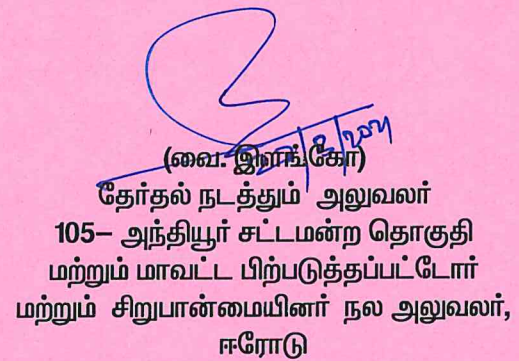 (வை. இளங்கோ)
தேர்தல் நடத்தும் அலுவலர்
105– அந்தியூர் சட்டமன்ற தொகுதி
மற்றும் மாவட்ட பிற்படுத்தப்பட்டோர்
மற்றும் சிறுபான்மையினர் நல அலுவலர்,
ஈரோடு